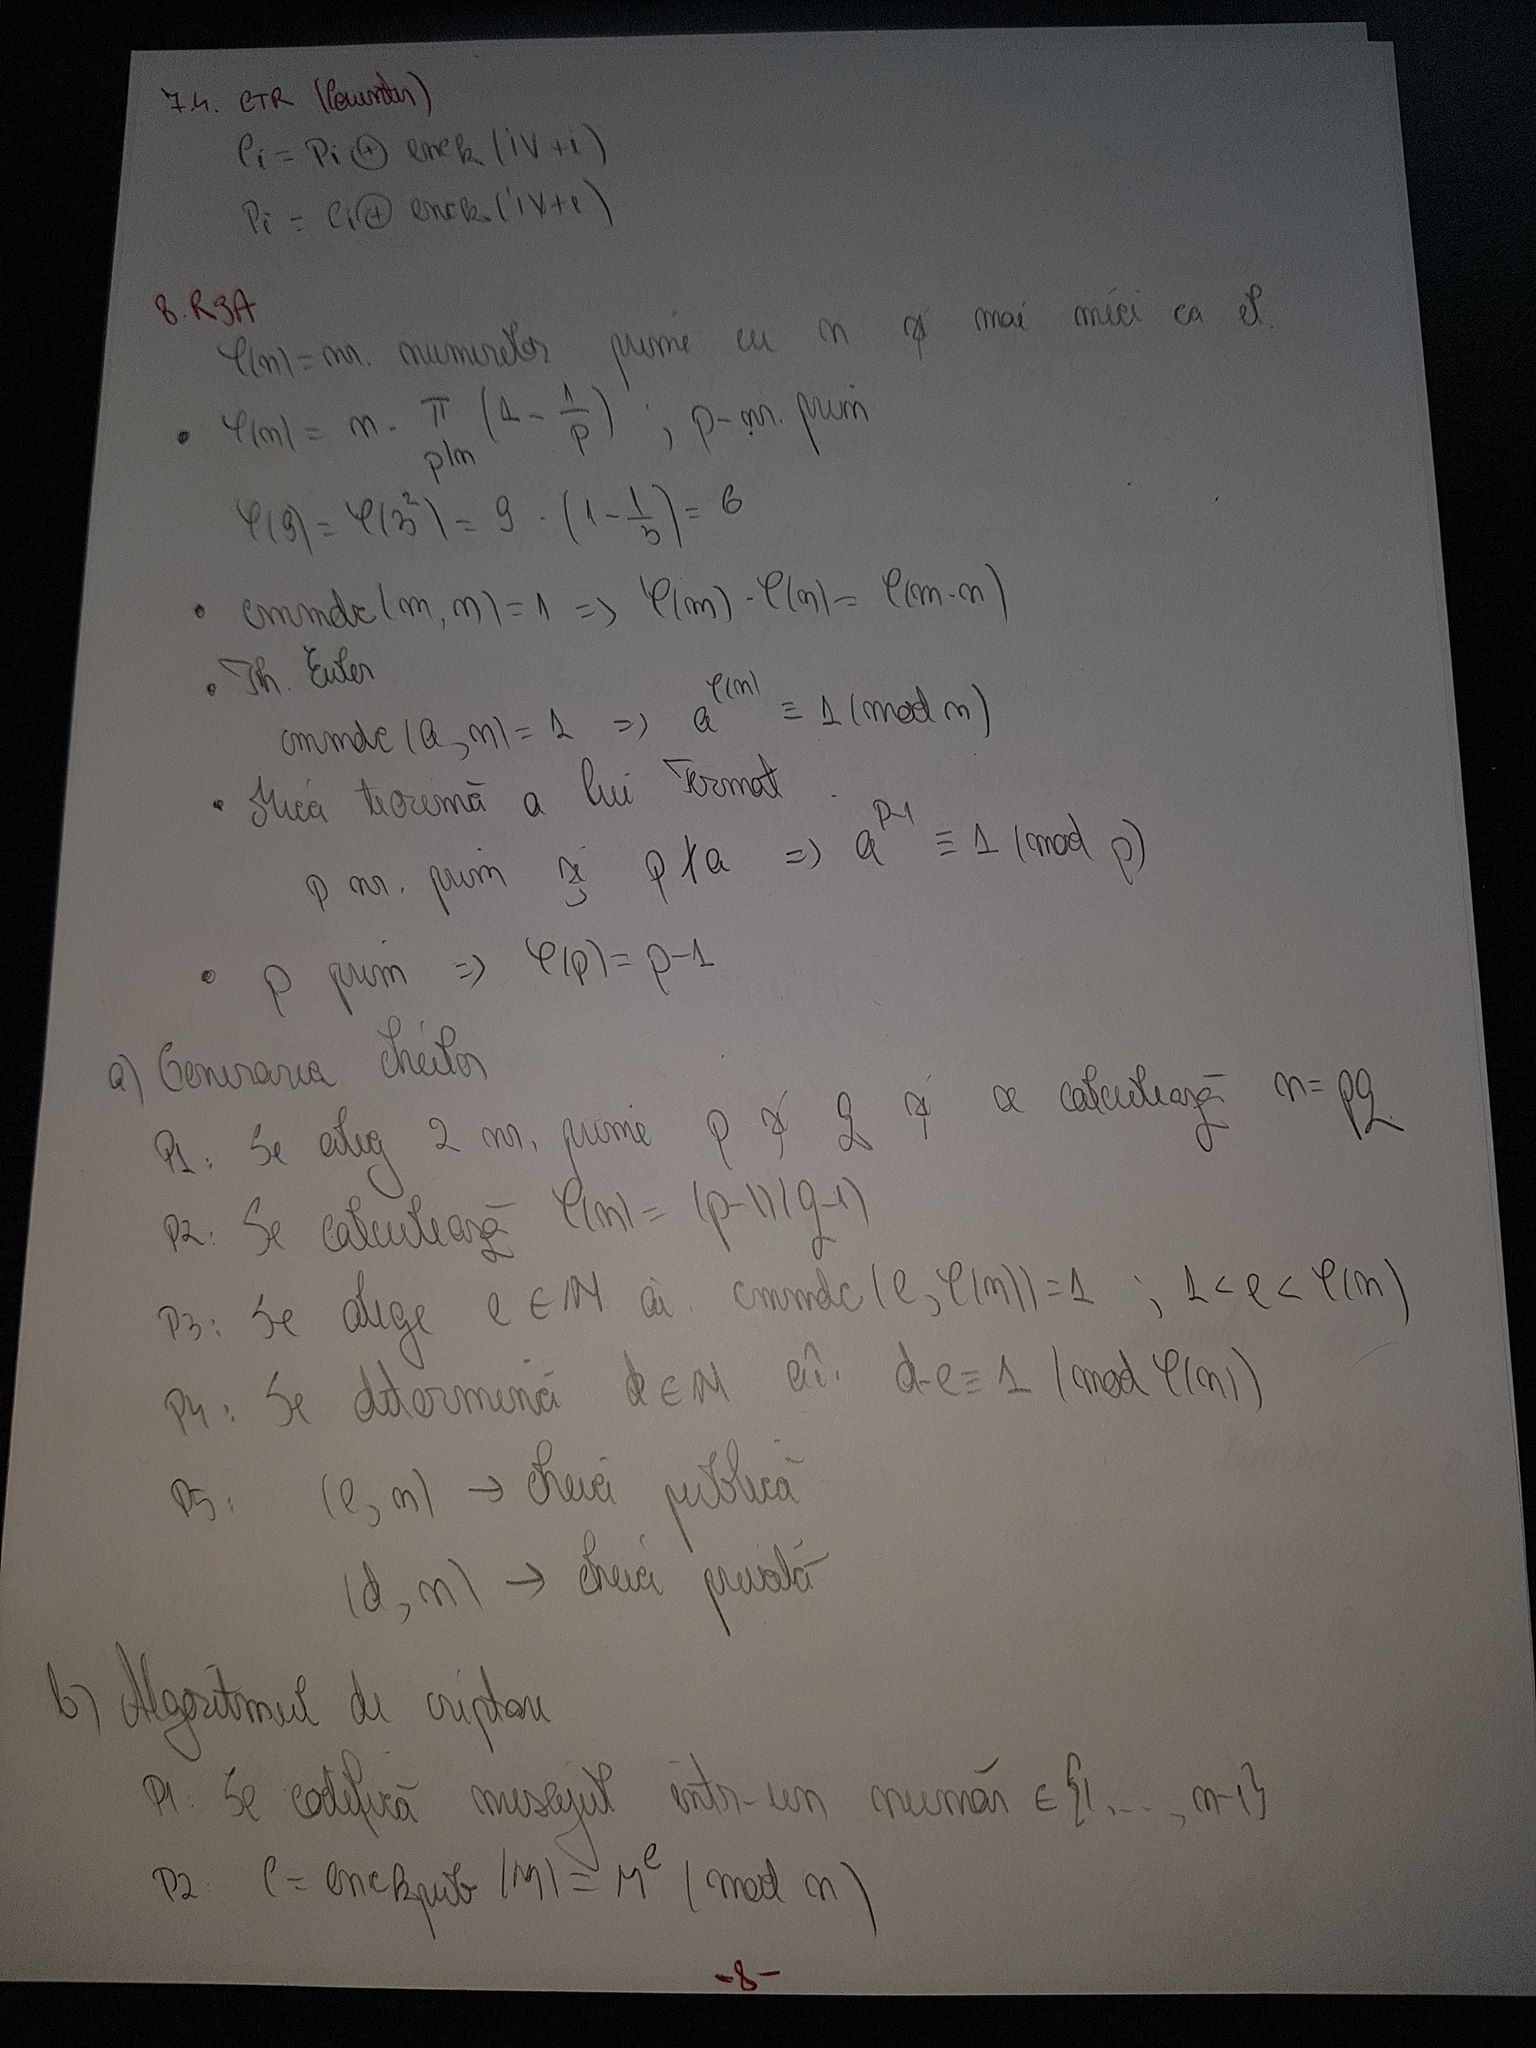 7.4. CTR (Counter)
Ci = Pi ⊕ enck (iV+i)
Pi = Ci ⊕ enck (iV+i)
8. RSA
φ(n) = nr. numerelor prime cu n și mai mici ca el.
• φ(n) = n · π p|n (1 - 1/p) ; p - nr. prim
φ(9) = φ(3²) = 9 · (1 - 1/3) = 6
• cmmdc (m, n) = 1 => φ(m) · φ(n) = φ(m·n)
• Th. Euler
cmmdc (a, n) = 1 => a^φ(n) ≡ 1 (mod n)
• Mica teoremă a lui Fermat
p nr. prim și p ∤ a => a^p-1 ≡ 1 (mod p)
• p prim => φ(p) = p-1
a) Generarea cheilor
P1: Se aleg 2 nr. prime p și q și se calculează n = pq.
P2: Se calculează φ(n) = (p-1)(q-1)
P3: Se alege e ∈ N aî. cmmdc (e, φ(n)) = 1 ; 1 < e < φ(n)
P4: Se determină d ∈ N aî. d·e ≡ 1 (mod φ(n))
P5: (e, n) → cheia publică
(d, n) → cheia privată
b) Algoritmul de criptare
P1: Se codifică mesajul într-un număr ∈ {1, ..., n-1}
P2: C = enckpub (M) = M^e (mod n)
-8-